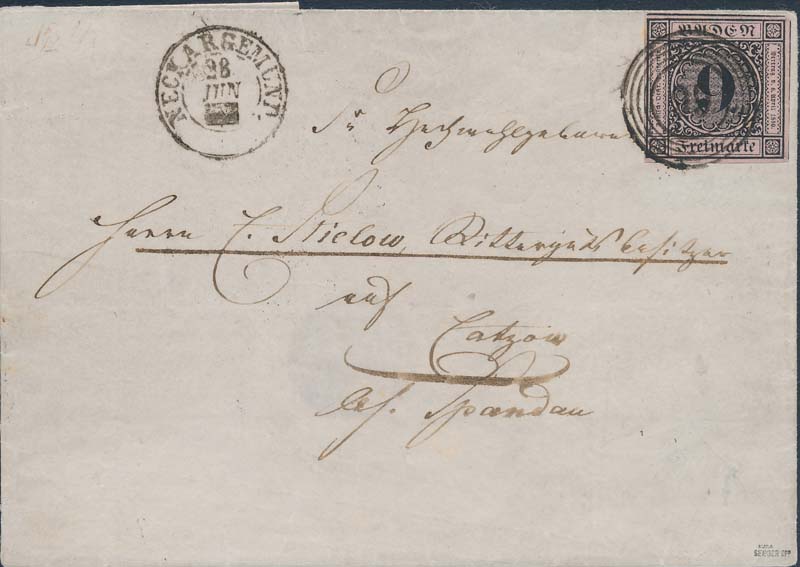 NECKARGEMÜND.
28
JUN
BADEN
9
Freimarke
Sr Hochwohlgeboren
Herrn C. Nielow, Rittergutsbesitzer
auf
Catzow
bei Spandau